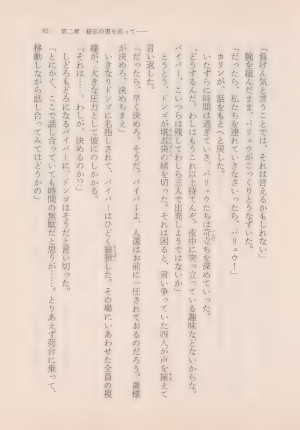 91　第二章　秘伝の書を巡って……
「負けん気と言うことでは、それは言えるかもしれない」
腕を組んだまま、バリュウがこっくりとうなずいた。
「だったら、私たちを連れていきなさいったら、バリュウ！」
カリンが、話をもとへと戻した。
いたずらに時間は過ぎていき、バリュウたちは苛立ちを深めていった。
「どうするんだ。わしはもうこれ以上待てんぞ。夜中に突っ立っている趣味などないからな。
バイパー、こいつらは残してわしら三人で出発しようではないか」
とうとう、ドンゴが堪忍袋の緒を切った。それは困ると、言い争っていた四人が声を揃えて
言い返した。
「だったら、早く決めろ。そうだ、バイパーよ、人選はお前に一任されておるのだろう。貴様
が決めろ、決めちまえ」
いきなりドンゴに名指しされて、バイパーはひどく狼狽した。その場にいあわせた全員の視
線が、大きな圧力として彼にのしかかる。
「それは……。わしが、決めるのか!?」
しどろもどろになるバイパーに、ドンゴはそうだと言い切った。
「とにかく、ここで話し合っていても時間の無駄だと思うが……。とりあえず荷台に乗って、
移動しながら話し合ってみてはどうかの」